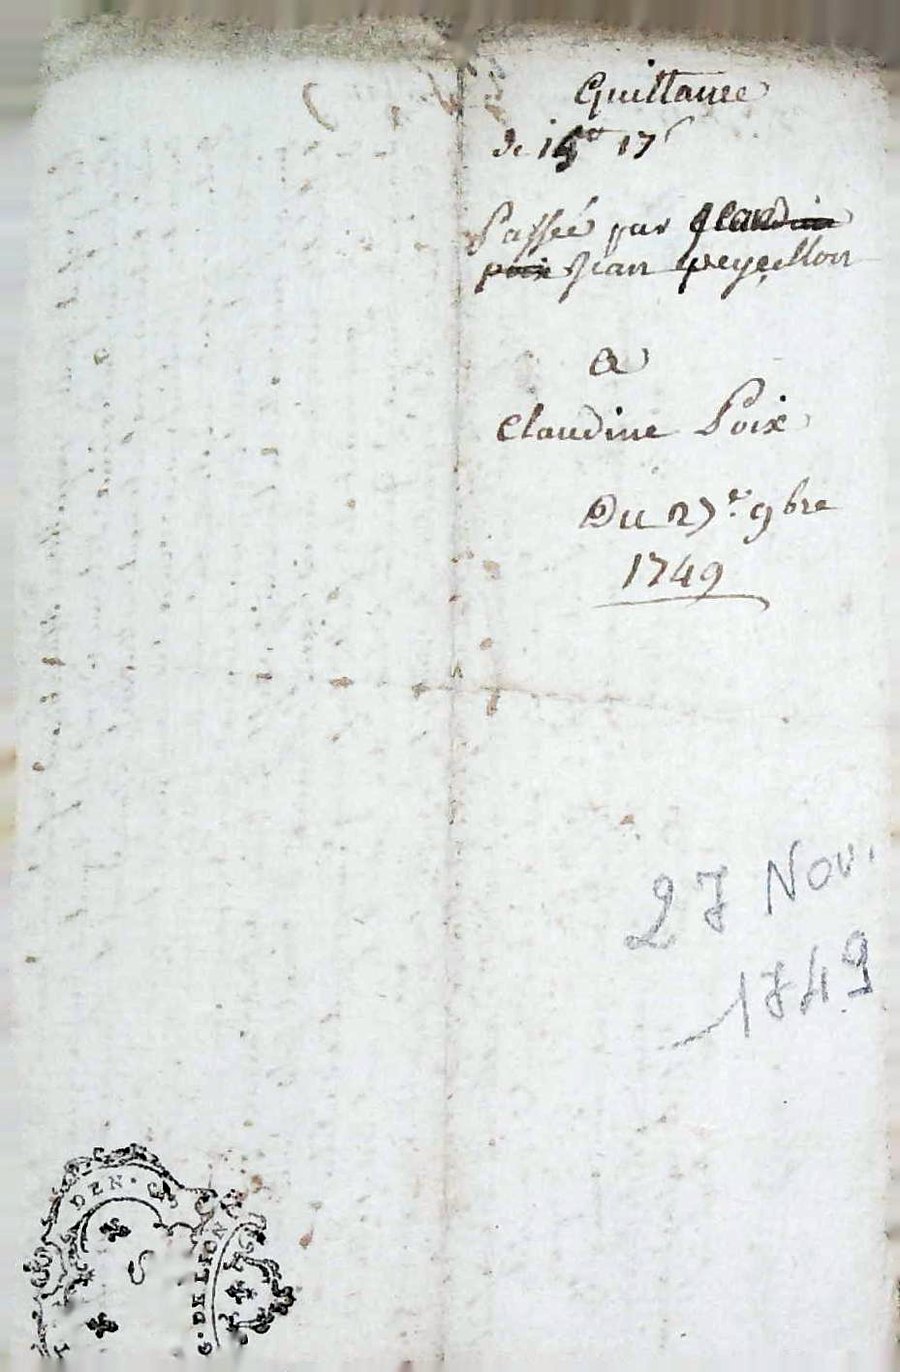 Quittance
de 15ᵗᵗ 17ˢ
Passée par Claudine
poix Jean peyeillon
a
Claudine Poix
Du 27ᵉ. 9bre
1749
27 Nov.
1749
DEN.
G. DE LION